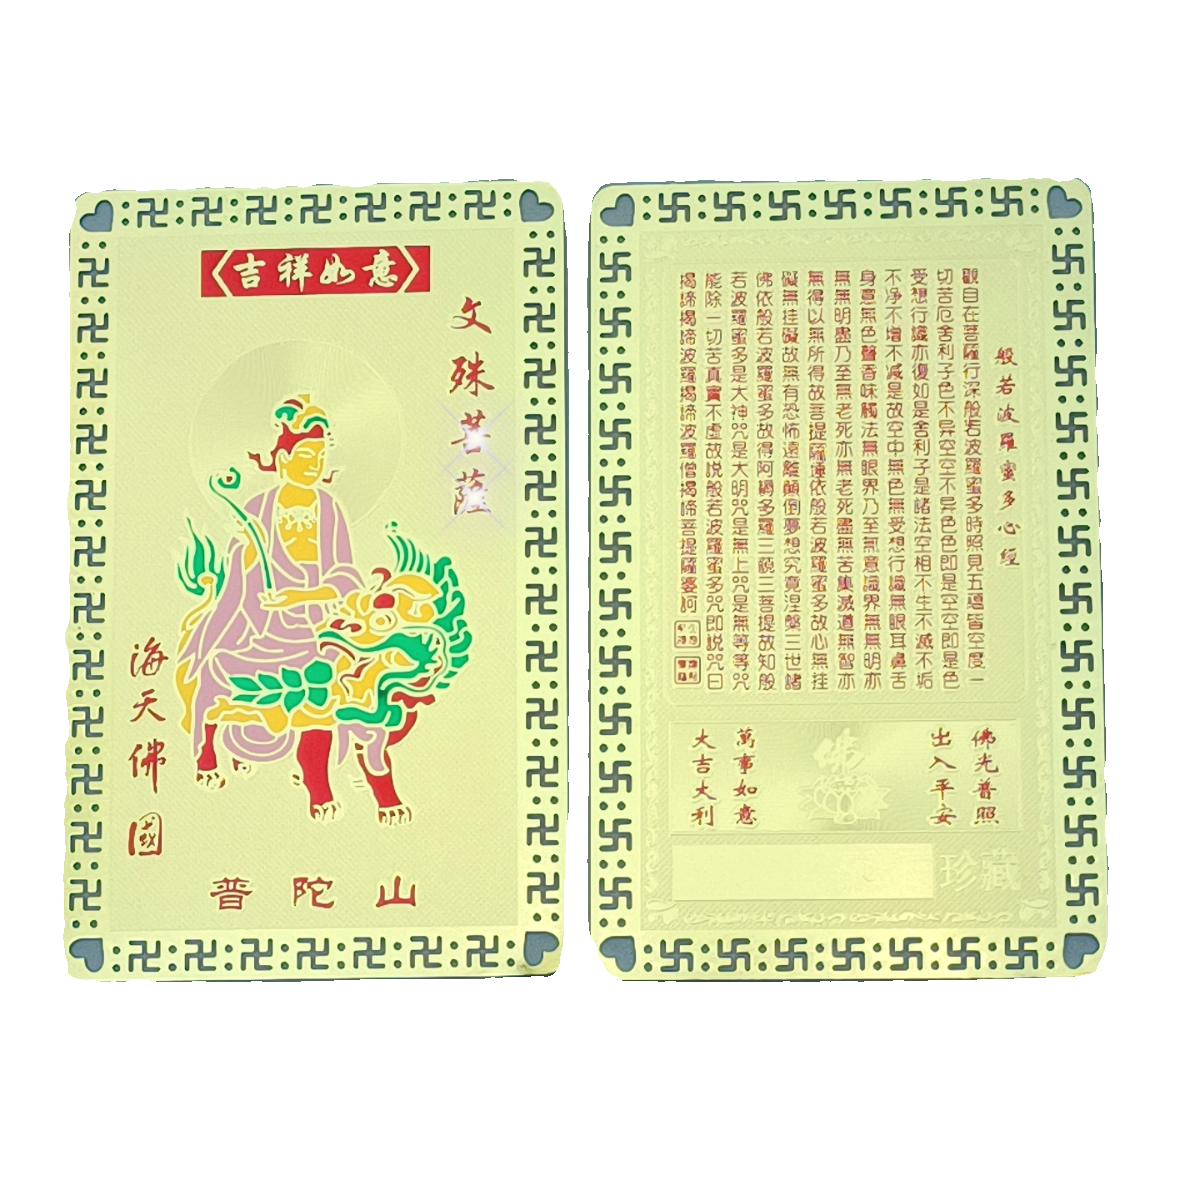 吉祥如意
文殊菩薩
海天佛國
普陀山
般若波羅蜜多心經
觀自在菩薩行深般若波羅蜜多時照見五蘊皆空度一
切苦厄舍利子色不异空空不异色色即是空空即是色
受想行識亦復如是舍利子是諸法空相不生不滅不垢
不净不增不减是故空中無色無受想行識無眼耳鼻舌
身意無色聲香味觸法無眼界乃至無意識界無無明亦
無無明盡乃至無老死亦無老死盡無苦集滅道無智亦
無得以無所得故菩提薩埵依般若波羅蜜多故心無挂
礙無挂礙故無有恐怖遠離顛倒夢想究竟涅槃三世諸
佛依般若波羅蜜多故得阿耨多羅三藐三菩提故知般
若波羅蜜多是大神咒是大明咒是無上咒是無等等咒
能除一切苦真實不虛故說般若波羅蜜多咒即說咒曰
揭諦揭諦波羅揭諦波羅僧揭諦菩提薩婆訶
佛光普照
出入平安
佛
萬事如意
大吉大利
珍藏